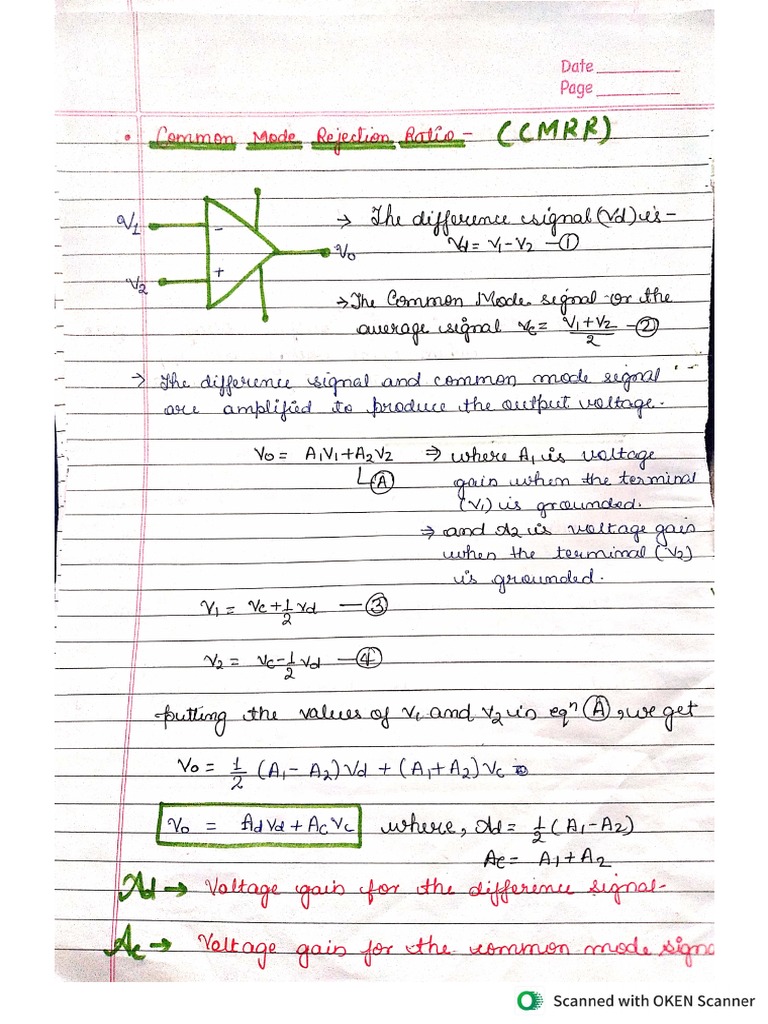 Date
Page
• Common Mode Rejection Ratio - (CMRR)
V1
-
V2
+
Vo
→ The difference signal (Vd) is -
Vd = V1 - V2 — ①
→ The Common Mode signal or the
average signal Vc = (V1 + V2)/2 — ②
→ The difference signal and common mode signal
are amplified to produce the output voltage.
Vo = A1V1 + A2V2 ⇒ where A1 is voltage
Ⓐ gain when the terminal
(V1) is grounded.
⇒ and A2 is voltage gain
when the terminal (V2)
is grounded.
V1 = Vc + 1/2 Vd — ③
V2 = Vc - 1/2 Vd — ④
putting the values of V1 and V2 in eqn Ⓐ, we get
Vo = 1/2 (A1 - A2) Vd + (A1 + A2) Vc
Vo = AdVd + AcVc where, Ad = 1/2 (A1 - A2)
Ac = A1 + A2
Ad → Voltage gain for the difference signal-
Ac → Voltage gain for the common mode signa
Scanned with OKEN Scanner